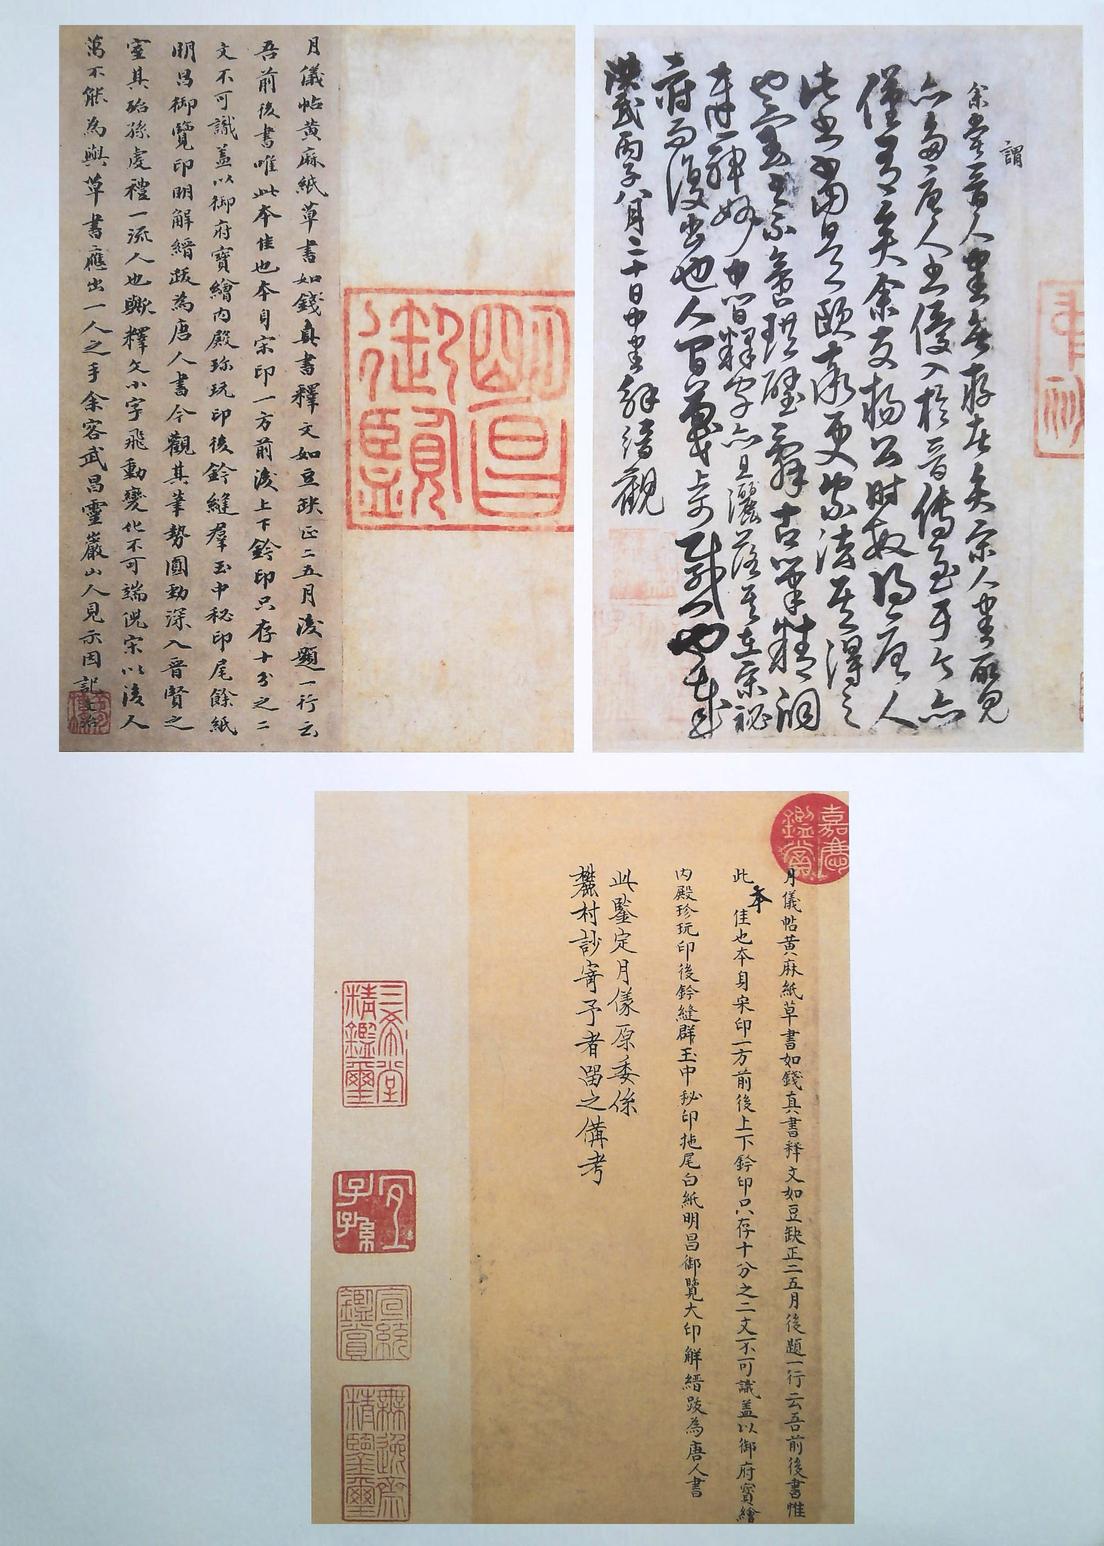 謂
余嘗晉人書無存在矣宋人書所見
亦多唐人書優入於晉傳至于今亦
僅有矣余友楊公時敏得唐人
此書
拱璧 古筆精潤
神妙中間釋字亦且灑落 在宋秘
府而復出也人間
洪武丙子八月二十日中書解縉觀
明昌
御覽
月儀帖黃麻紙草書如錢真書釋文如豆缺正二五月後題一行云
吾前後書唯此本佳也本身宋印一方前後上下鈐印只存十分之二
文不可識蓋以御府寶繪內殿珍玩印後鈐縫群玉中秘印尾餘紙
明昌御覽印明解縉跋為唐人書今觀其筆勢圓勁深入晉賢之
室其殆孫虔禮一流人也歟釋文小字飛動變化不可端倪宋以後人
萬不能為與草書應出一人之手余客武昌靈巖山人見示因記
嘉慶
鑑賞
月儀帖黃麻紙草書如錢真書釋文如豆缺正二五月後題一行云吾前後書惟
此本佳也本身宋印一方前後上下鈐印只存十分之二文不可識蓋以御府寶繪
內殿珍玩印後鈐縫群玉中秘印拖尾白紙明昌御覽大印解縉跋為唐人書
此鑒定月儀原委係
麓村訟寄予者留之備考
三希堂
精鑑璽
宜
子孫
宣統
鑑賞
無逸齋
精鑒璽